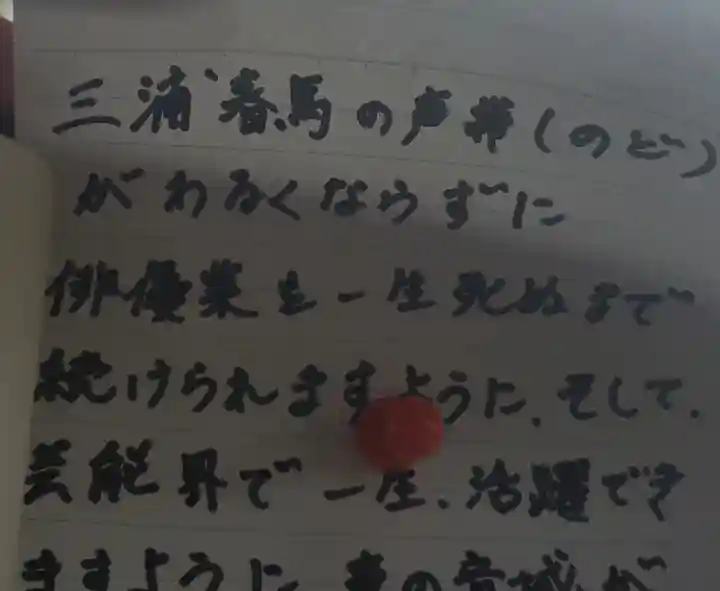 三浦春馬の声帯(のど)
がわるくならずに
俳優業を一生死ぬまで
続けられますように、そして、
芸能界で一生、活躍でき
ますように、春の音域が